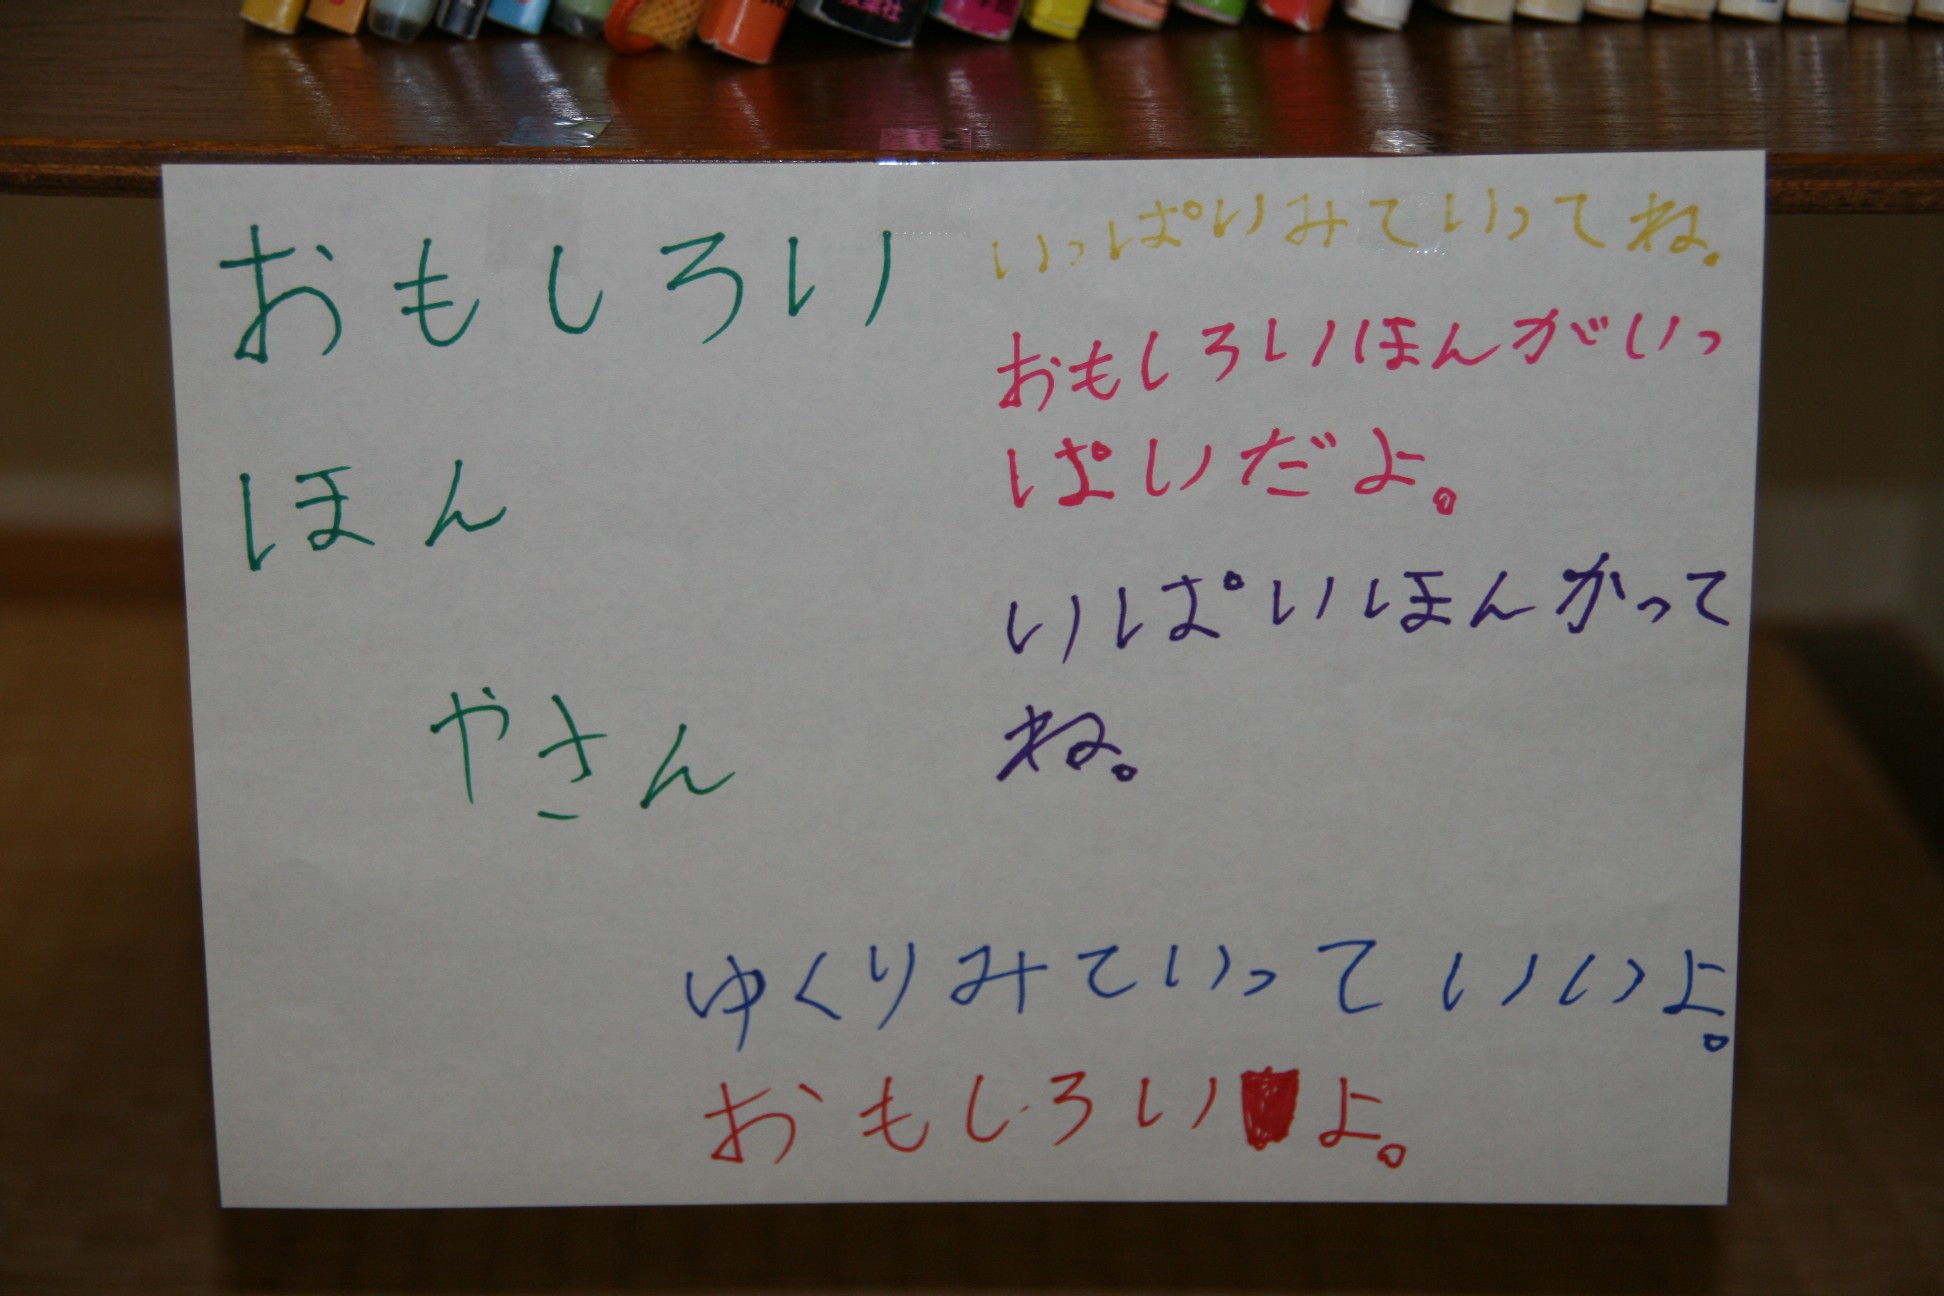 おもしろい
ほん
やさん
いっぱいみていってね。
おもしろいほんがいっ
ぱいだよ。
いぱいほんかって
ね。
ゆくりみていっていいよ。
おもしろいよ。